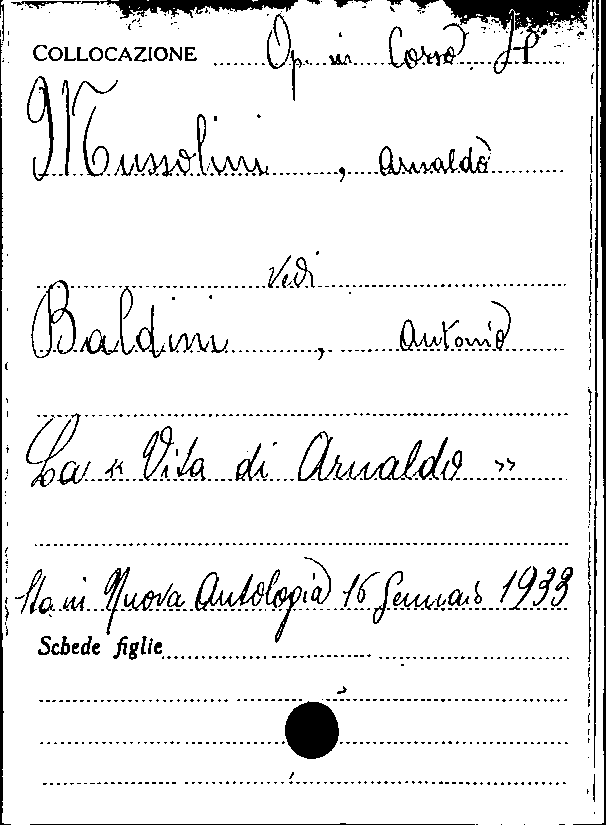 COLLOCAZIONE Op. in Corso
Mussolini, Arnaldo
Vedi
Baldini, Antonio
La « Vita di Arnaldo »
Sta in Nuova Antologia 16 Gennaio 1933
Schede figlie